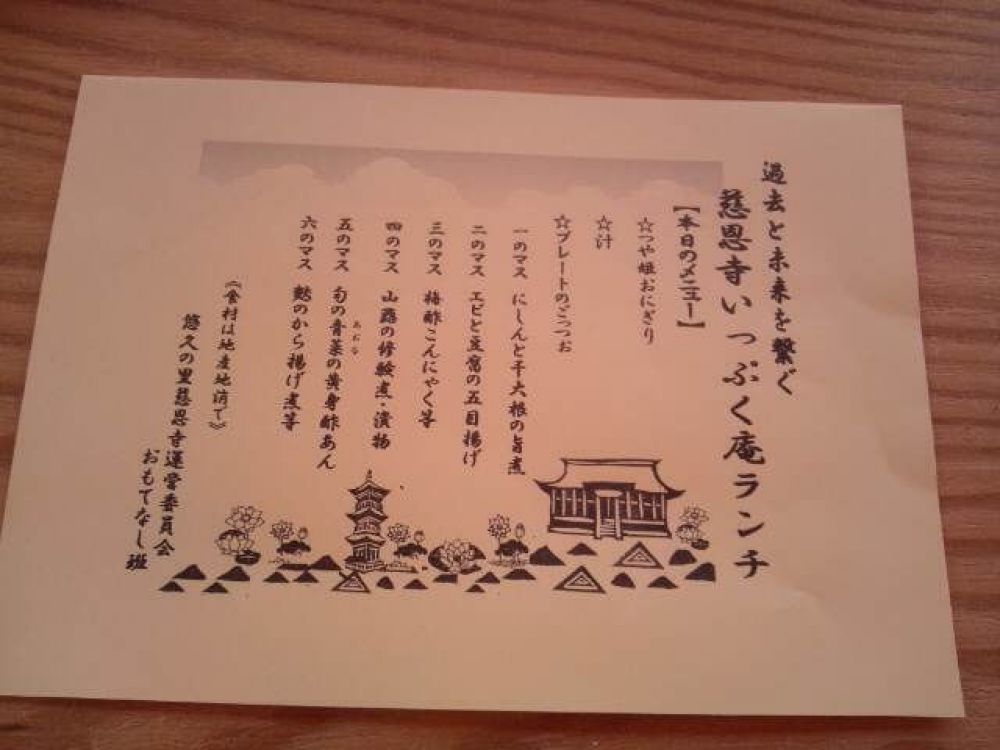 過去と未来を繋ぐ
慈恩寺いっぷく庵ランチ
【本日のメニュー】
☆つや姫おにぎり
☆汁
☆プレートのごっつお
一のマス にしんと干大根の旨煮
二のマス エビと豆腐の五目揚げ
三のマス 梅酢こんにゃく等
四のマス 山蕗の修験煮・漬物
五のマス 旬の青菜の黄身酢あん
あおな
六のマス 麩のから揚げ煮等
《食材は地産地消で》
悠久の里慈恩寺運営委員会
おもてなし班